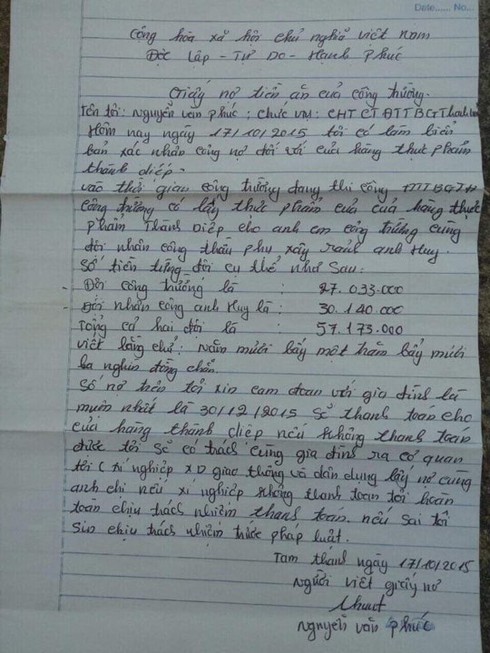 Date...... No...
Cộng hòa xã hội chủ nghĩa việt nam
Độc lập - Tự Do - Hạnh phúc
Giấy nợ tiền ăn của công trường.
Tên tôi: Nguyễn văn phúc; chức vụ: CHT CT ATTBGT
Hôm nay ngày 17/10/2015 tôi có làm biên
bản xác nhận công nợ đối với cửa hàng thực phẩm
thành điệp.
vào thời gian công trường đang thi công
công trường có lấy thực phẩm của cửa hàng thực
phẩm Thành Điệp cho anh em công trường cùng
đội nhân công thầu phụ xây rãnh anh Huy.
số tiền từng đội cụ thể như sau:
- Đội công trường là : 27.033.000
- Đội nhân công anh Huy là : 30.140.000
Tổng cả hai đội là : 57.173.000
viết bằng chữ: Năm mươi bảy một trăm bảy mươi
ba nghìn đồng chẵn.
số nợ trên tôi xin cam đoan với gia đình là
muộn nhất là 30/12/2015 sẽ thanh toán cho
cửa hàng thành điệp nếu không thanh toán
được tôi sẽ có trách cùng gia đình ra cơ quan
tôi (xí nghiệp XD giao thông và dân dụng lấy nợ cùng
anh chị nếu xí nghiệp không thanh toán tôi hoàn
toàn chịu trách nhiệm thanh toán. nếu sai tôi
xin chịu trách nhiệm trước pháp luật.
Tam thành ngày 17/10/2015
Người viết giấy nợ
Nguyễn văn phúc